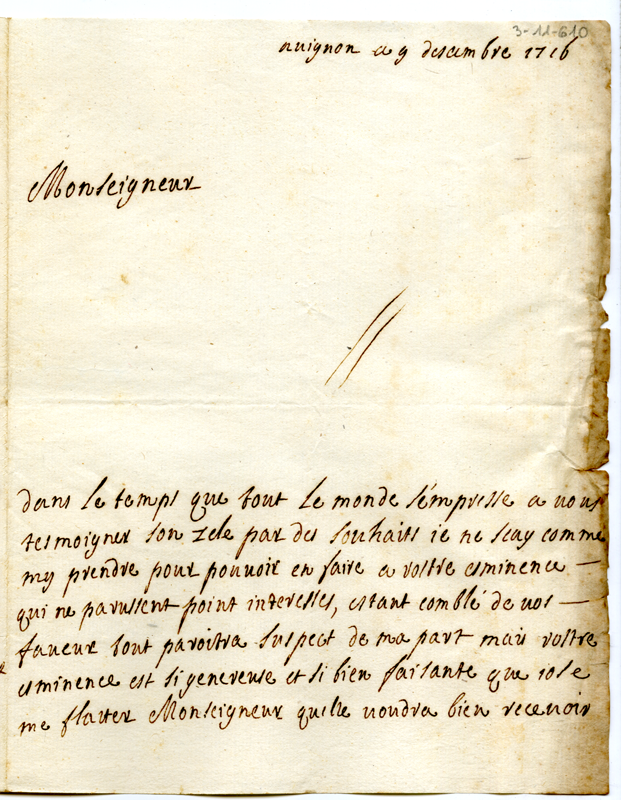 3-11-610
auignon a 9 desambre 1716
Monseigneur
dans le temps que tout le monde sempresse a vous
tesmoigner son zele par des souhaits ie ne scay comme
my prendre pour pouuoir en faire a vostre esminence
qui ne parussent point interesses, estant comblé de vos
faueur tout paroitra suspect de ma part mais vostre
esminence est si genereuse et si bien faisante que iose
me flatter Monseigneur quelle uoudra bien receuoir